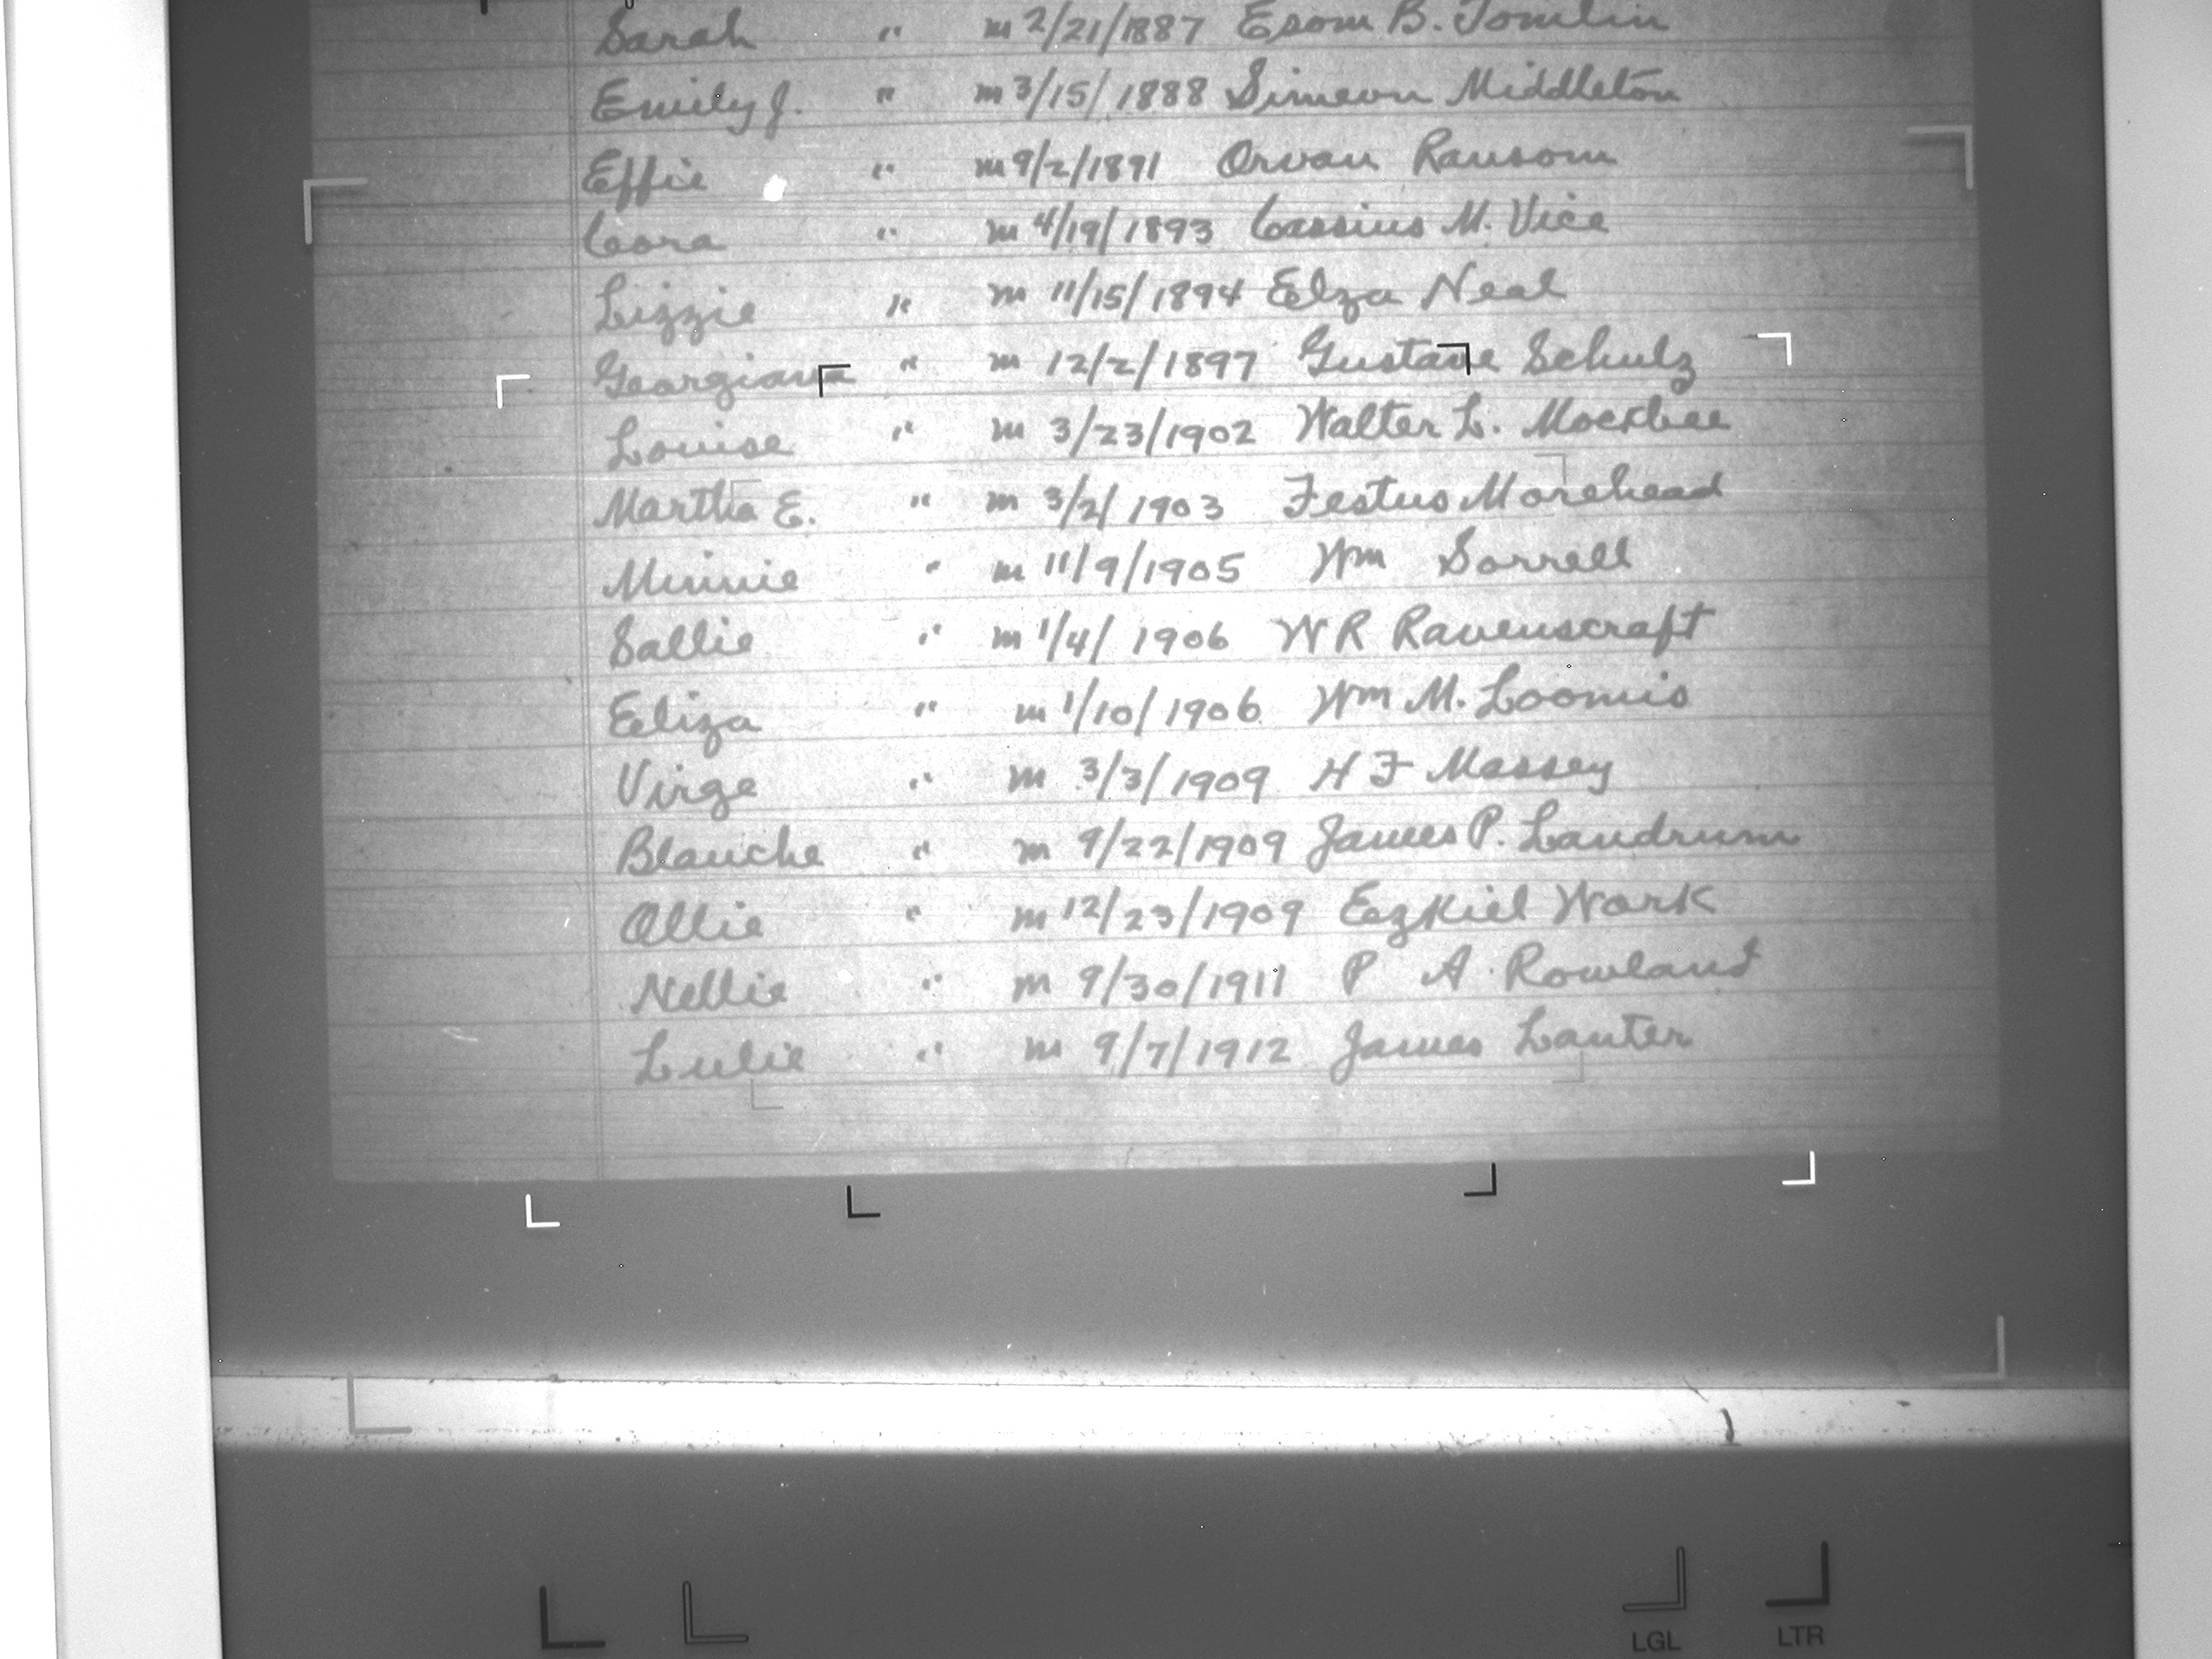 Sarah " m 2/21/1887 Esom B. Tomlin
Emily J. " m 3/15/1888 Simeon Middleton
Effie " m 9/2/1891 Orvan Ransom
Cora " m 4/19/1893 Cassius M. Vice
Lizzie " m 11/15/1894 Elza Neal
Georgiana " m 12/2/1897 Gustave Schulz
Louise " m 3/23/1902 Walter L. Mockbee
Martha E. " m 3/2/1903 Festus Morehead
Minnie " m 11/9/1905 Wm Sorrell
Sallie " m 1/4/1906 W R Ravenscraft
Eliza " m 1/10/1906 Wm M. Loomis
Virge " m 3/3/1909 H F Massey
Blanche " m 9/22/1909 James P. Landrum
Ollie " m 12/23/1909 Ezkiel Work
Nellie " m 9/30/1911 P A Rowland
Lulie " m 9/7/1912 James Lanter
LGL LTR